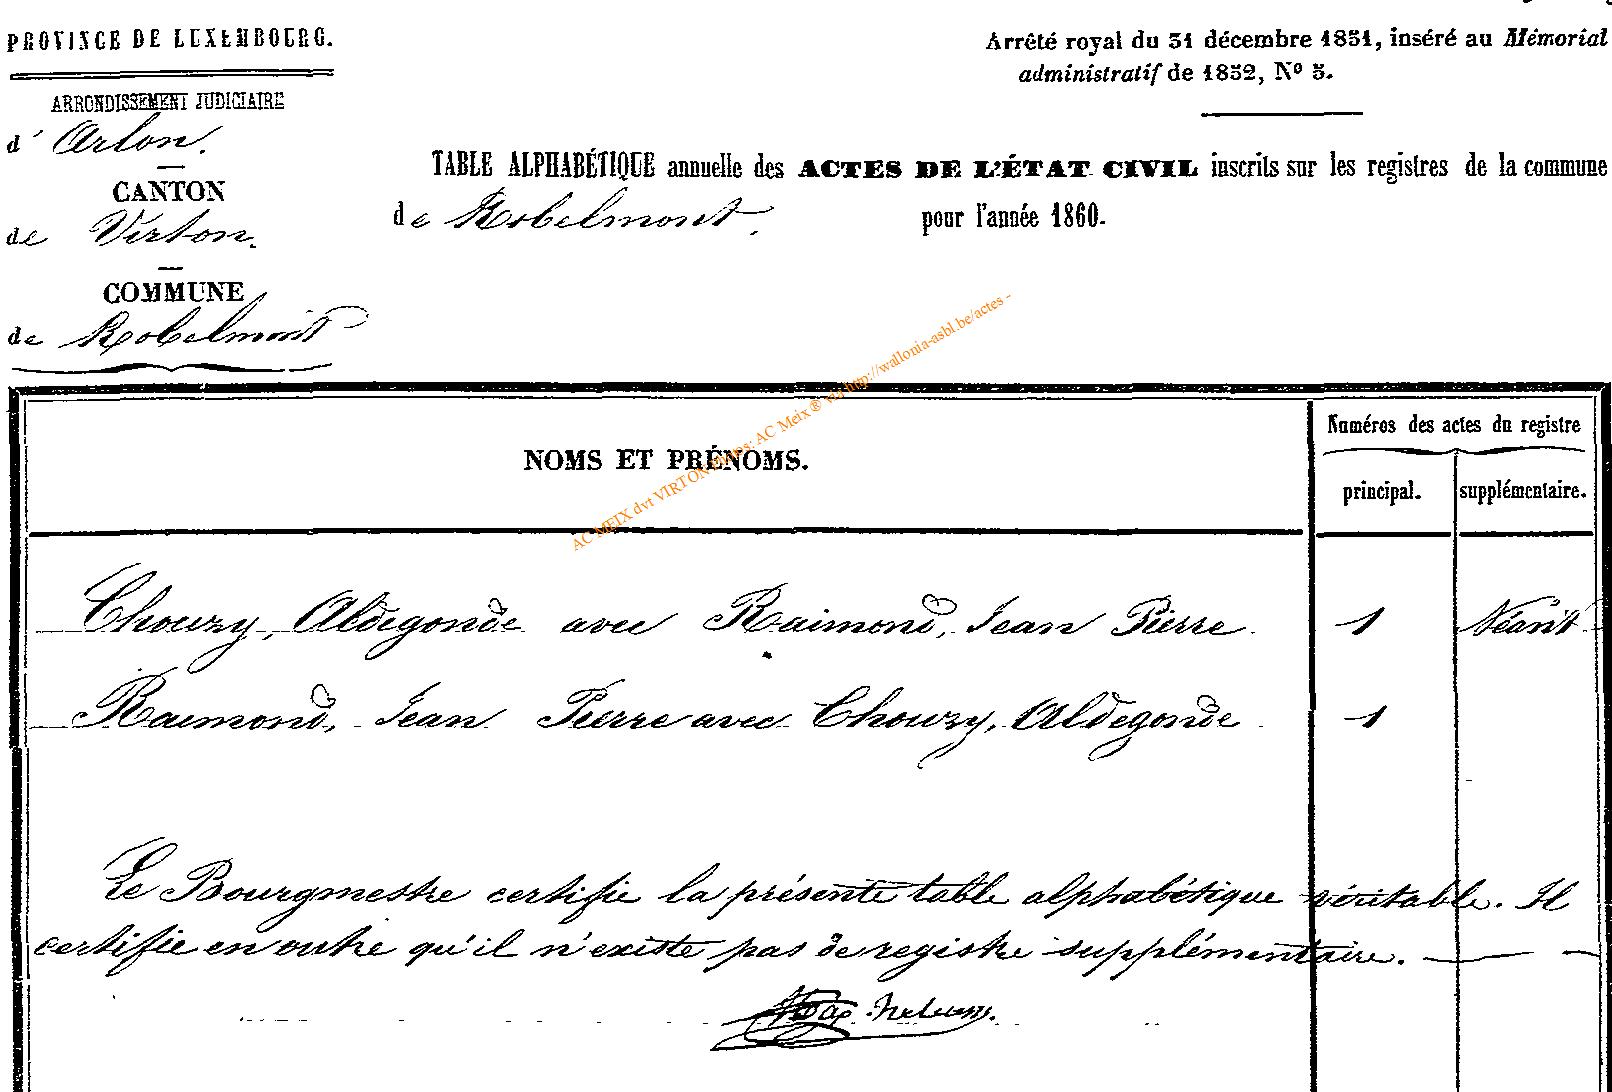 PROVINCE DE LUXEMBOURG.
Arrêté royal du 31 décembre 1851, inséré au Mémorial
administratif de 1852, Nº 5.
ARRONDISSEMENT JUDICIAIRE
d' Arlon.
CANTON
de Virton.
COMMUNE
de Robelmont
TABLE ALPHABÉTIQUE annuelle des ACTES DE L'ÉTAT CIVIL inscrits sur les registres de la commune
de Robelmont. pour l'année 1860.
NOMS ET PRÉNOMS.
Numéros des actes du registre
principal.
supplémentaire.
Thouzy, Aldegonde avec Raimond, Jean Pierre 1 Néant
Raimond, Jean Pierre avec Thouzy, Aldegonde 1
Le Bourgmestre certifie la présente table alphabétique véritable. Il
certifie en outre qu'il n'existe pas de registre supplémentaire.
AC MEIX dvt VIRTON AC Meix ® http://wallonia-asbl.be/actes -